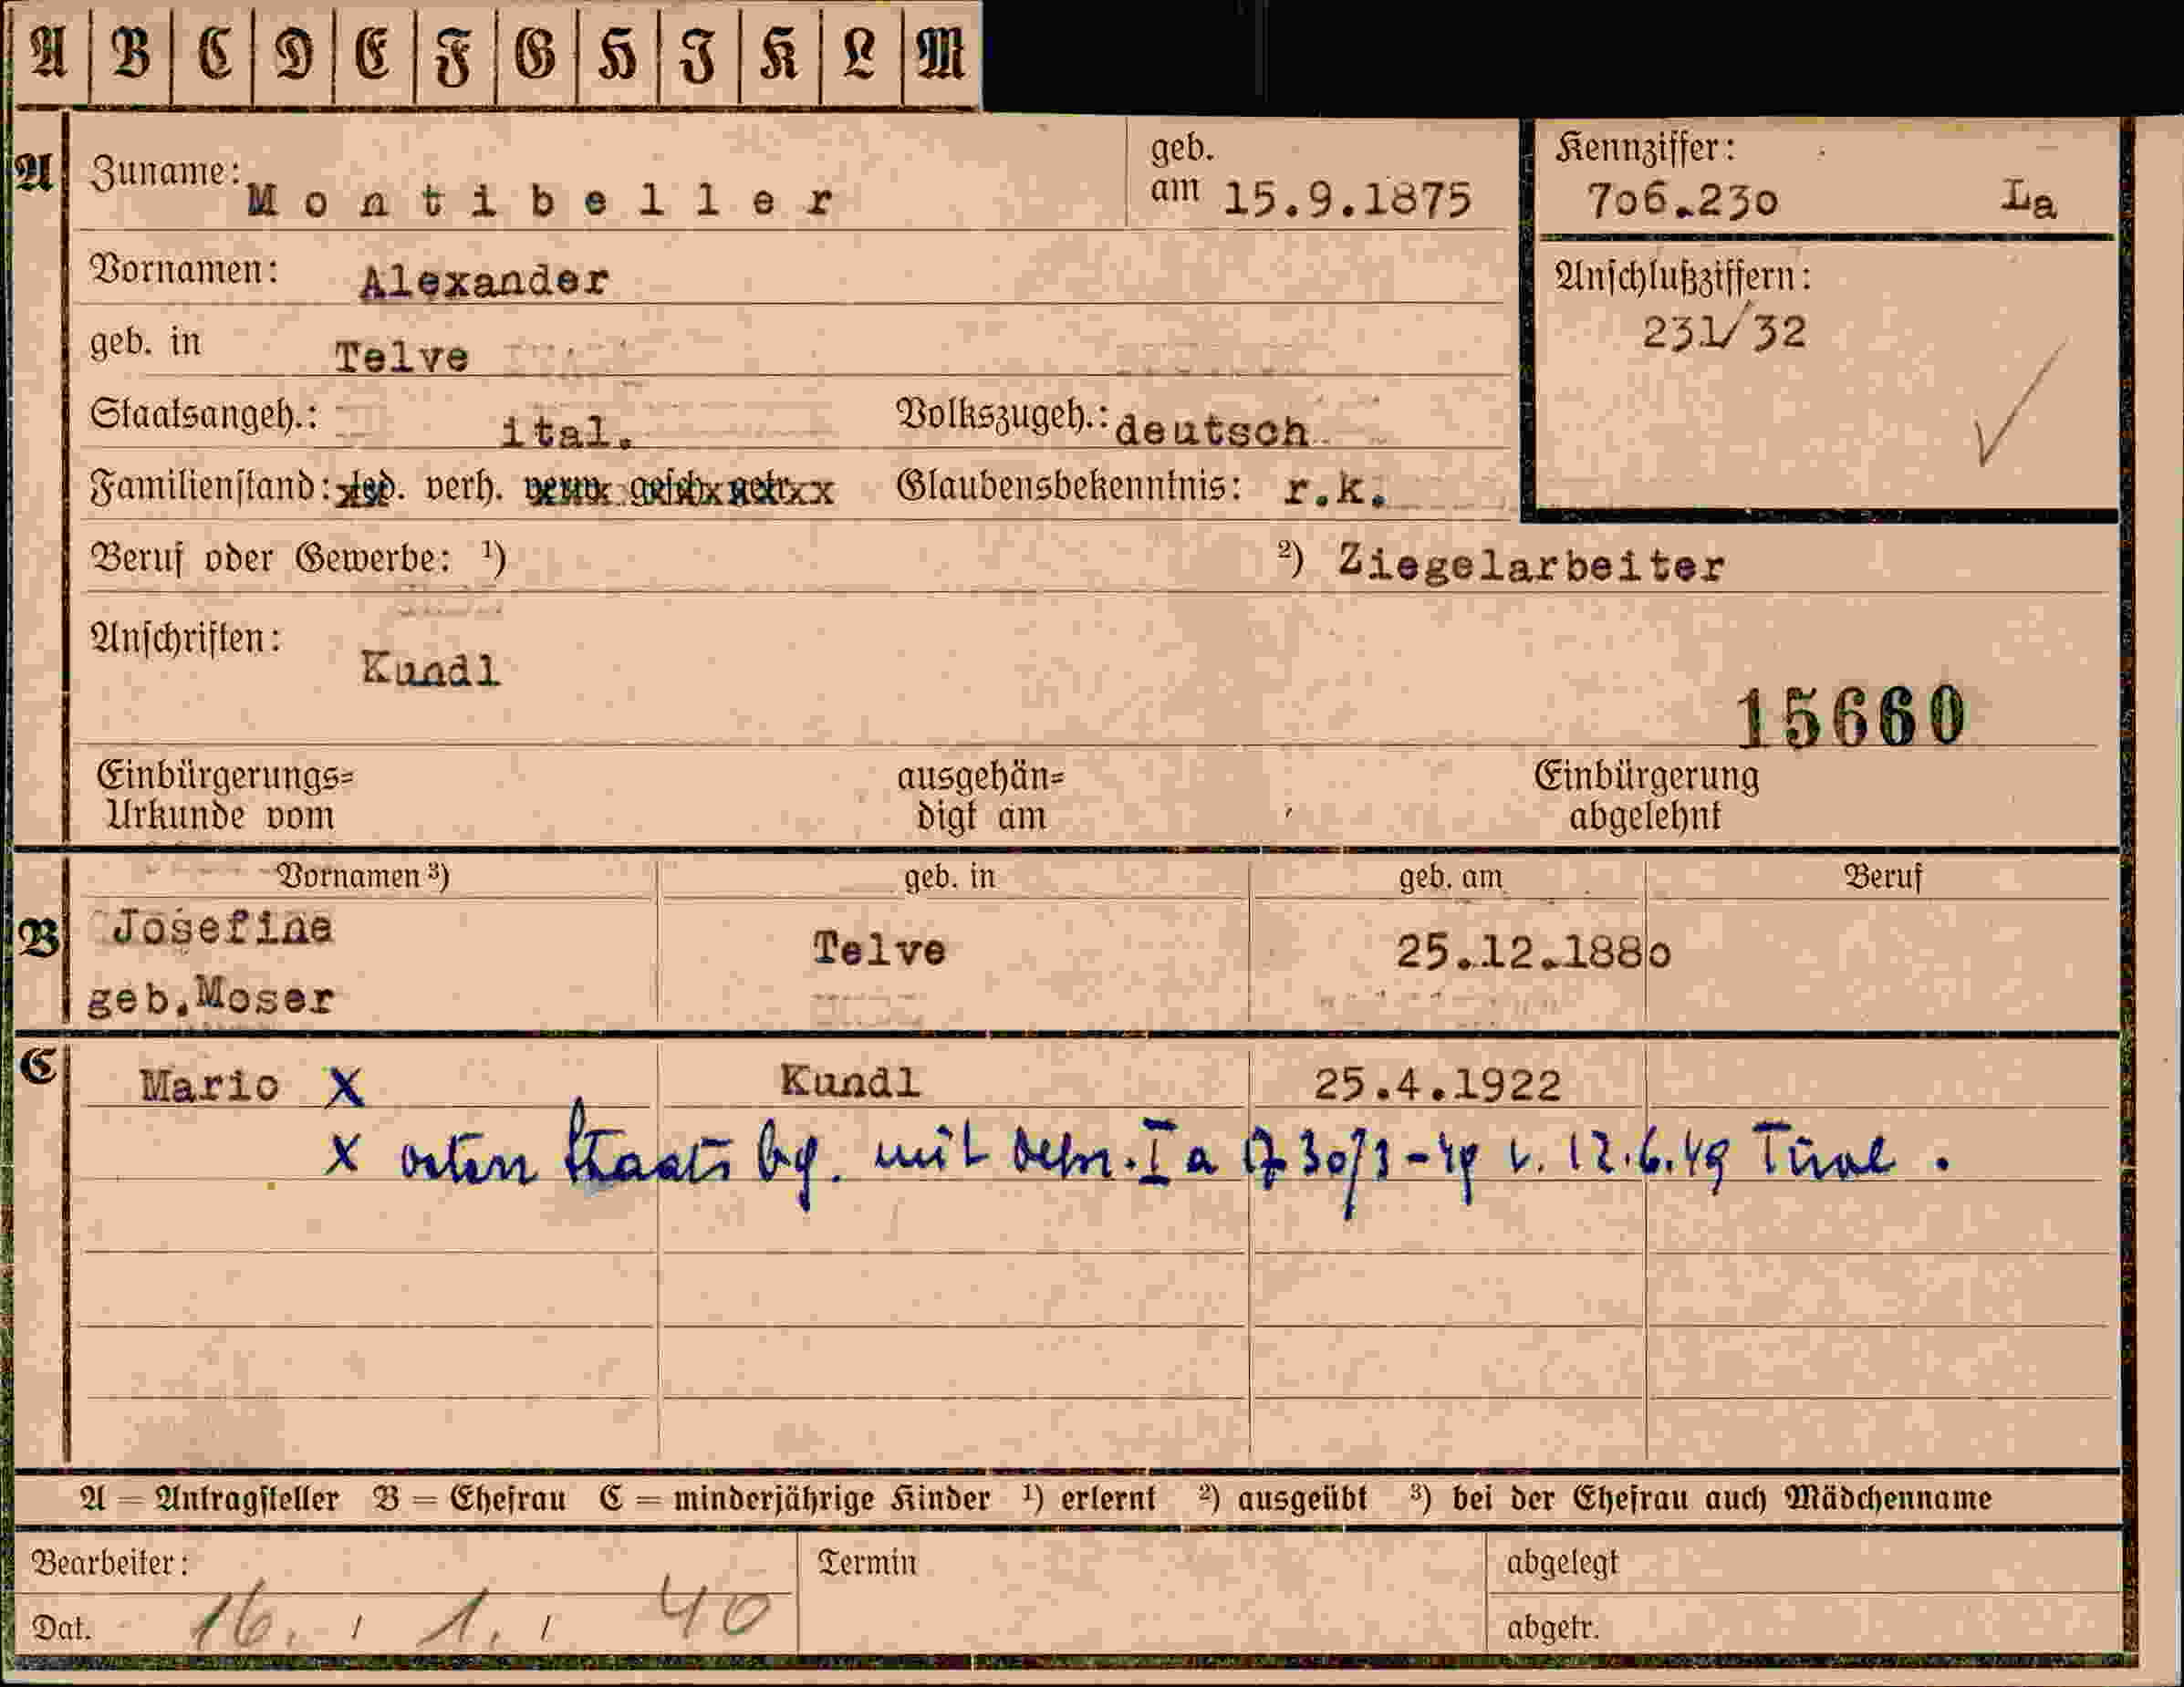 A B C D E F G H I K L M
A Zuname: Montibeller geb. am 15.9.1875 Kennziffer: 706.230 La
Vornamen: Alexander Anschlußziffern: 231/32
geb. in Telve
Staatsangeh.: ital. Volkszugeh.: deutsch
Familienstand: led. verh. verw. gesch. getr. Glaubensbekenntnis: r.k.
Beruf oder Gewerbe: ¹) ²) Ziegelarbeiter
Anschriften: Kundl
15660
Einbürgerungs= ausgehän= Einbürgerung
Urkunde vom digt am abgelehnt
Vornamen ³) geb. in geb. am Beruf
B Josefine Telve 25.12.1880
geb.Moser
C Mario X Kundl 25.4.1922
X Staatsbg. mit I a 30/3-49 v. 12.6.49
A = Antragsteller B = Ehefrau C = minderjährige Kinder ¹) erlernt ²) ausgeübt ³) bei der Ehefrau auch Mädchenname
Bearbeiter: Termin abgelegt
Dat. 16. 1. 40 abgetr.